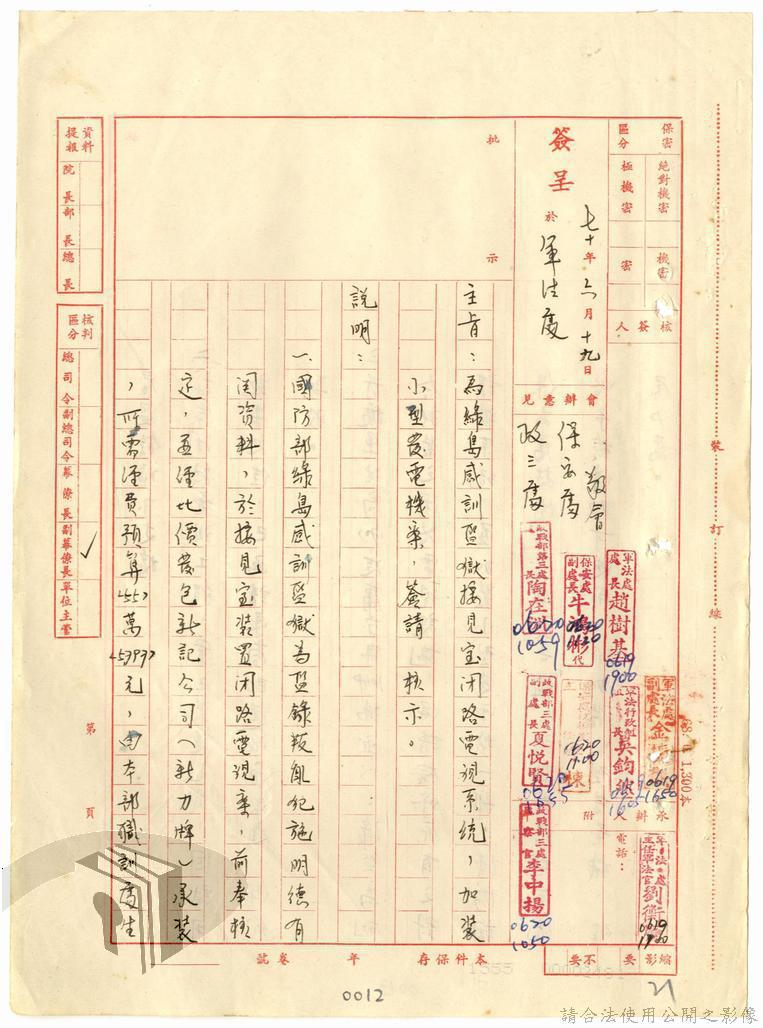 保密區分
絕對機密
極機密
機密
密
簽呈
七十年六月十九日
於軍法處
核簽人
會辦意見
敬會
保安處
政三處
軍法處處長趙樹基
0619
1900
保安處副處長牛
代
0620
政戰部第三處處長陶在
0620
1059
軍法處副處長金
0619
1650
軍法行政組組長吳鈞
政戰部三處副處長夏悅賢
0620
1055
0620
1100
政戰部三處李中揚
0620
1050
軍法處主任軍法官劉
0619
承辦人
電話:
附
縮影
要
不要
批示
主旨:為綠島感訓監獄接見室閉路電視系統,加裝
小型發電機案,簽請 核示。
說明:
一、國防部綠島感訓監獄為監錄叛亂犯施明德有
関資料,於接見室裝置閉路電視案,前奉核
定,並經比價發包新記公司(新力牌)承裝
,所需經費預算
萬
元,由本部職訓處生
資料提報
院長
部長
總長
核判區分
總司令
副總司令
幕僚長
副幕僚長
單位主管
✓
第 頁
本件保存 年 卷號
裝訂線
1,300本
0012
21
請合法使用公開之影像